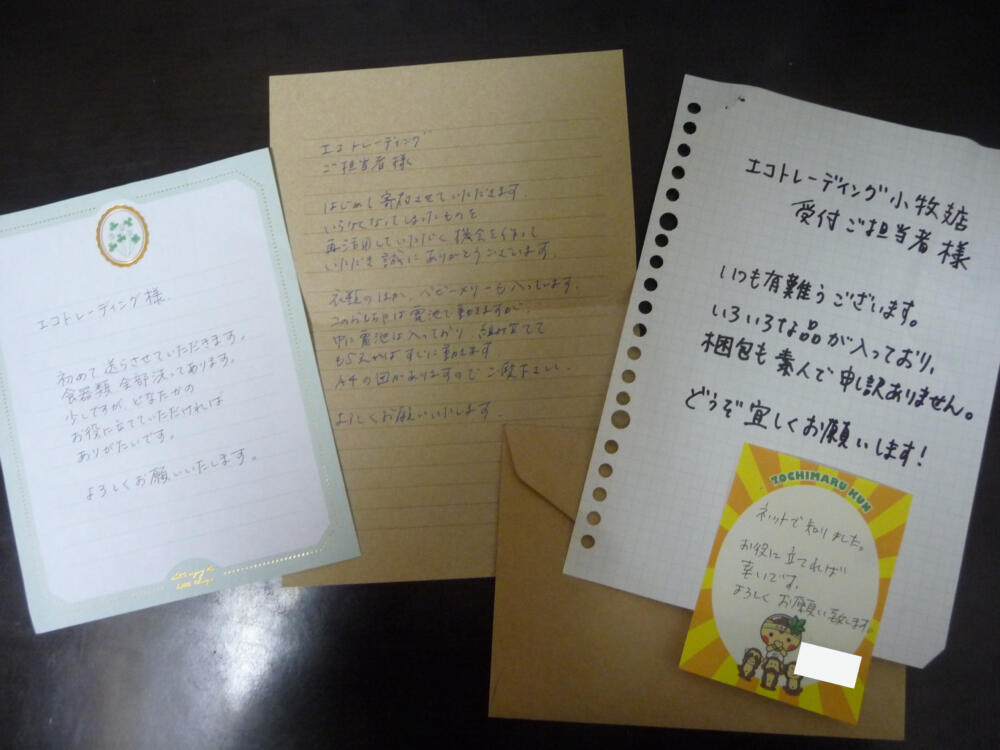 エコトレーディング様
初めて送らさせていただきます。
食器類全部洗ってあります。
少しですが、どなたかの
お役に立てていただければ
ありがたいです。
よろしくお願いいたします。
エコトレーディング
ご担当者様
はじめて寄付させていただきます。
いらなくなってしまったものを
再活用していただく機会を作って
いただき誠にありがとうございます。
衣類のほか、ベビーメリーも入っています。
このおもちゃは電池で動きますが、
中に電池は入っており、組み立てて
もらえればすぐに動きます
A4の図がありますのでご覧下さい。
よろしくお願いいたします。
エコトレーディング小牧店
受付ご担当者様
いつも有難うございます。
いろいろな品が入っており、
梱包も素人で申訳ありません。
どうぞ宜しくお願いします!
TOCHIMARU KUN
ネットで知りました。
お役に立てれば
幸いです。
よろしくお願い致します。